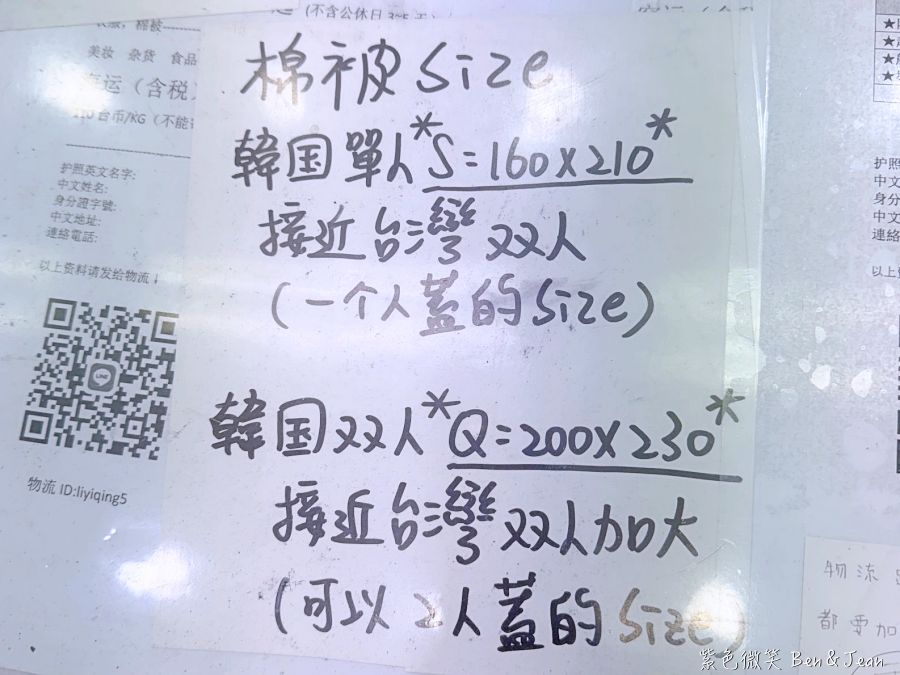 (不含公休日
美妆 杂货 食品
运（含税）
台币/KG（不能
护照英文名字:
中文姓名:
身分證字號:
中文地址:
連絡電話:
以上资料请发给物流！
LINE
物流 ID:liyiqing5
棉被 size
韓国單人*S=160x210*
接近台灣 双人
(一个人蓋的size)
韓国双人*Q=200x230*
接近台灣 双人加大
(可以2人蓋的size)
护照
中文
身分
中文
連絡
以上
物流
都要加
紫色微笑 Ben&Jean